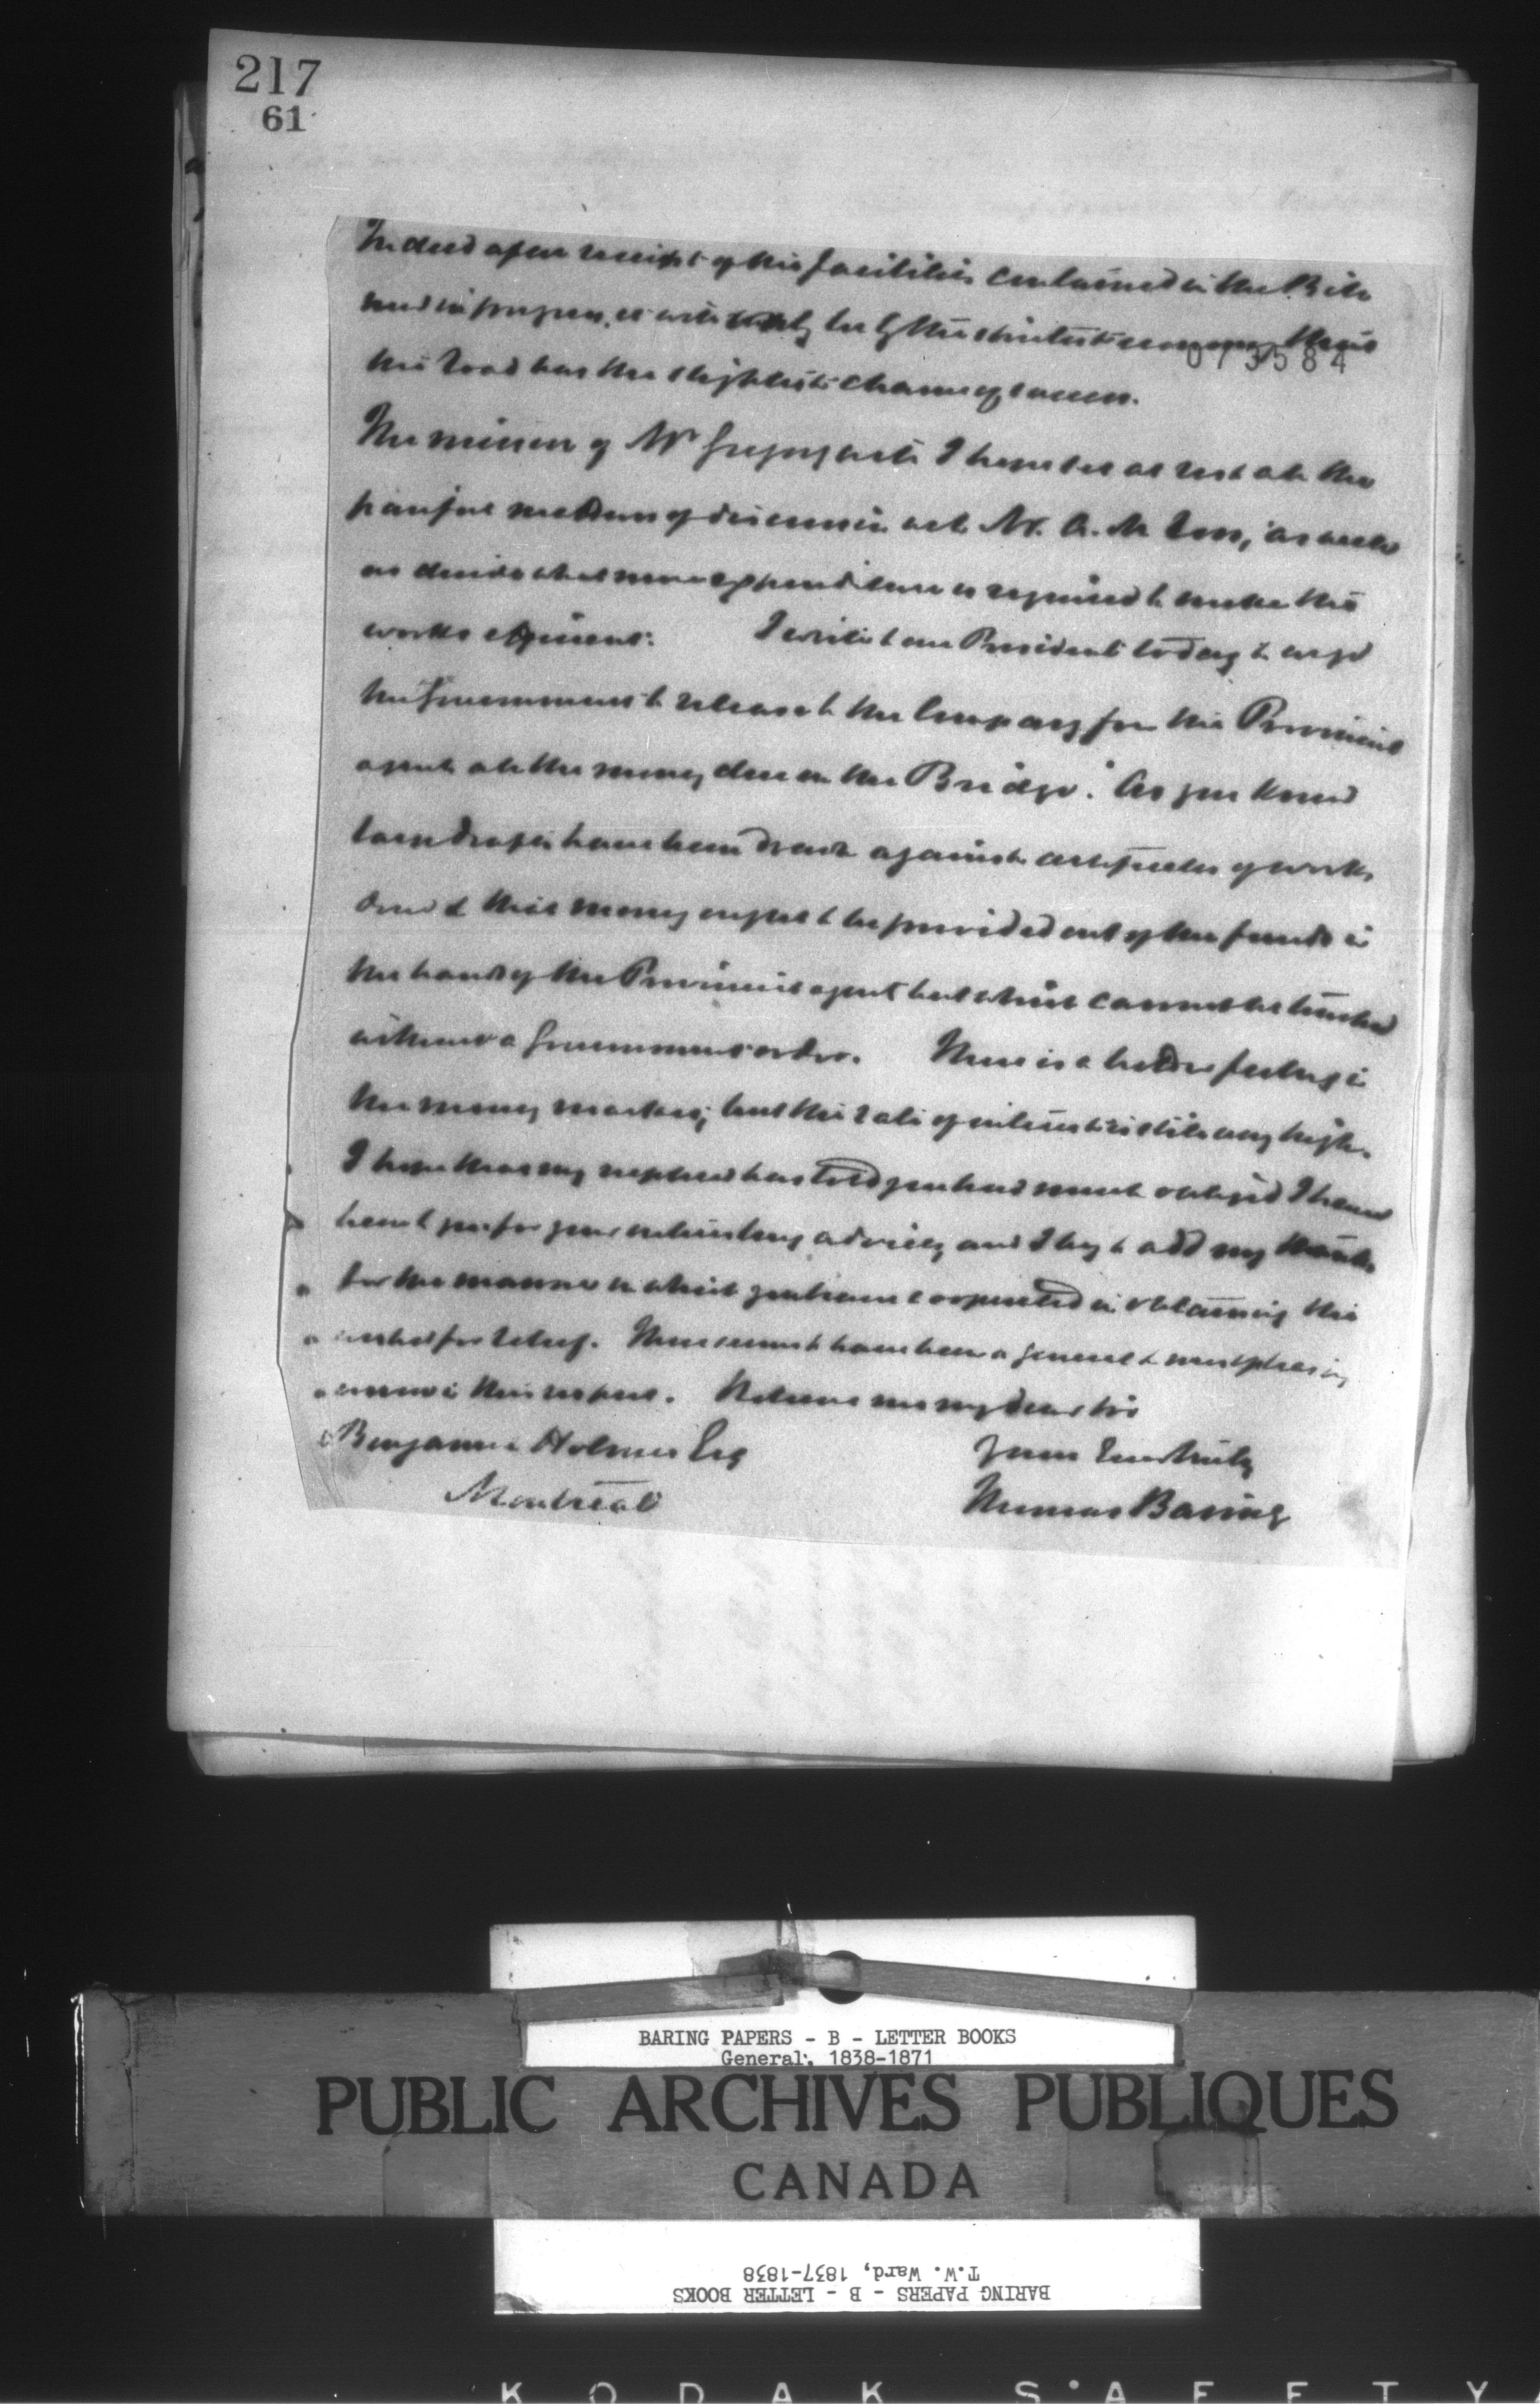 217
61
Indeed after receipt of the facilities contained in the Bill
now in progress, it will only be by the strictest economy that
073584
the road has the slightest chance of success.
The mission of Mr Gregory will I hope set at rest all the
painful matters of discussion with Mr. A. M. Ross, as well
as decide what more expenditure is required to make the
works efficient. I write to our President today to urge
the Government to release to the Company from the Provincial
agents all the money due on the Bridge. As you know
loan drafts have been drawn against certificates of works
done & this money ought to be provided out of the funds in
the hands of the Provincial agent but which cannot be touched
without a Government order. There is a better feeling in
the money market, but the rate of interest is still very high.
I hope that my nephew has told you how much obliged I have
been to you for your interesting advices, and I beg to add my thanks
for the manner in which you have cooperated in obtaining the
relief. There seems to have been a general & most pleasing
in this respect. Believe me my dear Sir
Benjamin Holmes Esq
Yours very truly
Montreal
Thomas Baring
BARING PAPERS - B - LETTER BOOKS
General, 1838-1871
PUBLIC ARCHIVES PUBLIQUES
CANADA
BARING PAPERS - B - LETTER BOOKS
T.W. Ward, 1837-1838
KODAK SAFETY